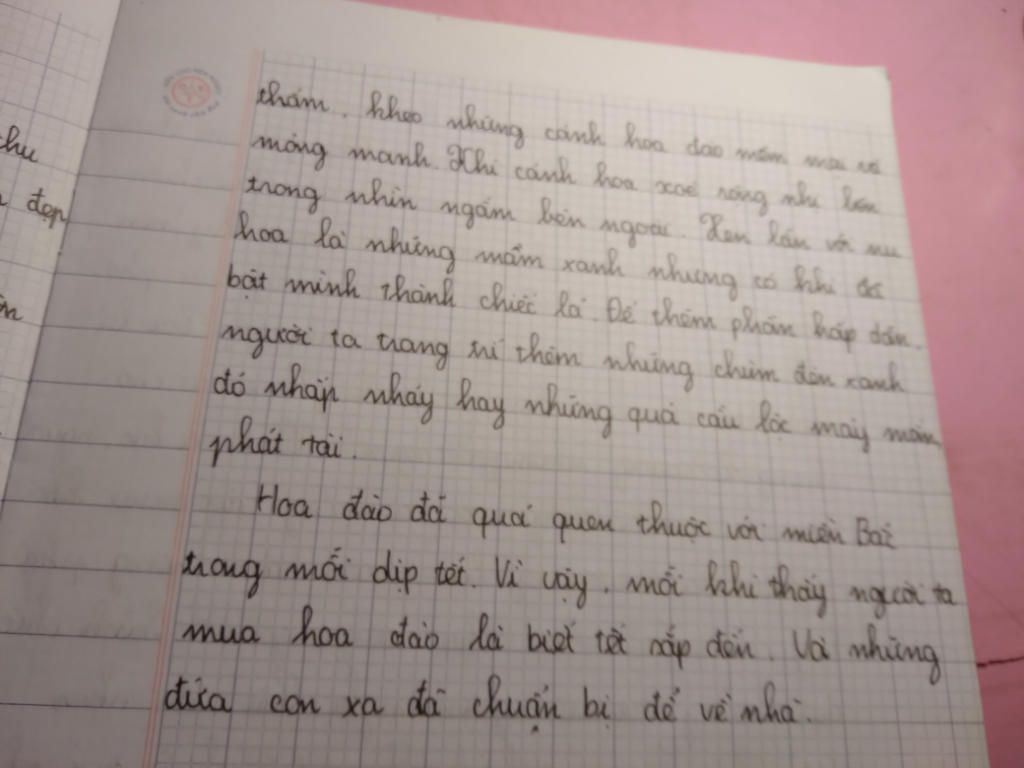 thắm, khoe những cánh hoa đào mềm mại và
mỏng manh. Khi cánh hoa xoè rộng nhị bên
trong nhìn ngắm bên ngoài. Xen lẫn với nụ
hoa là những mầm xanh nhưng có khi đã
bật mình thành chiếc lá. Để thêm phần hấp dẫn
người ta trang trí thêm những chùm đèn xanh
đỏ nhấp nháy hay những quả cầu lộc may mắn,
phát tài.
Hoa đào đã quá quen thuộc với miền Bắc
trong mỗi dịp tết. Vì vậy, mỗi khi thấy người ta
mua hoa đào là biết tết sắp đến. Và những
đứa con xa đã chuẩn bị để về nhà.
thu
đẹp